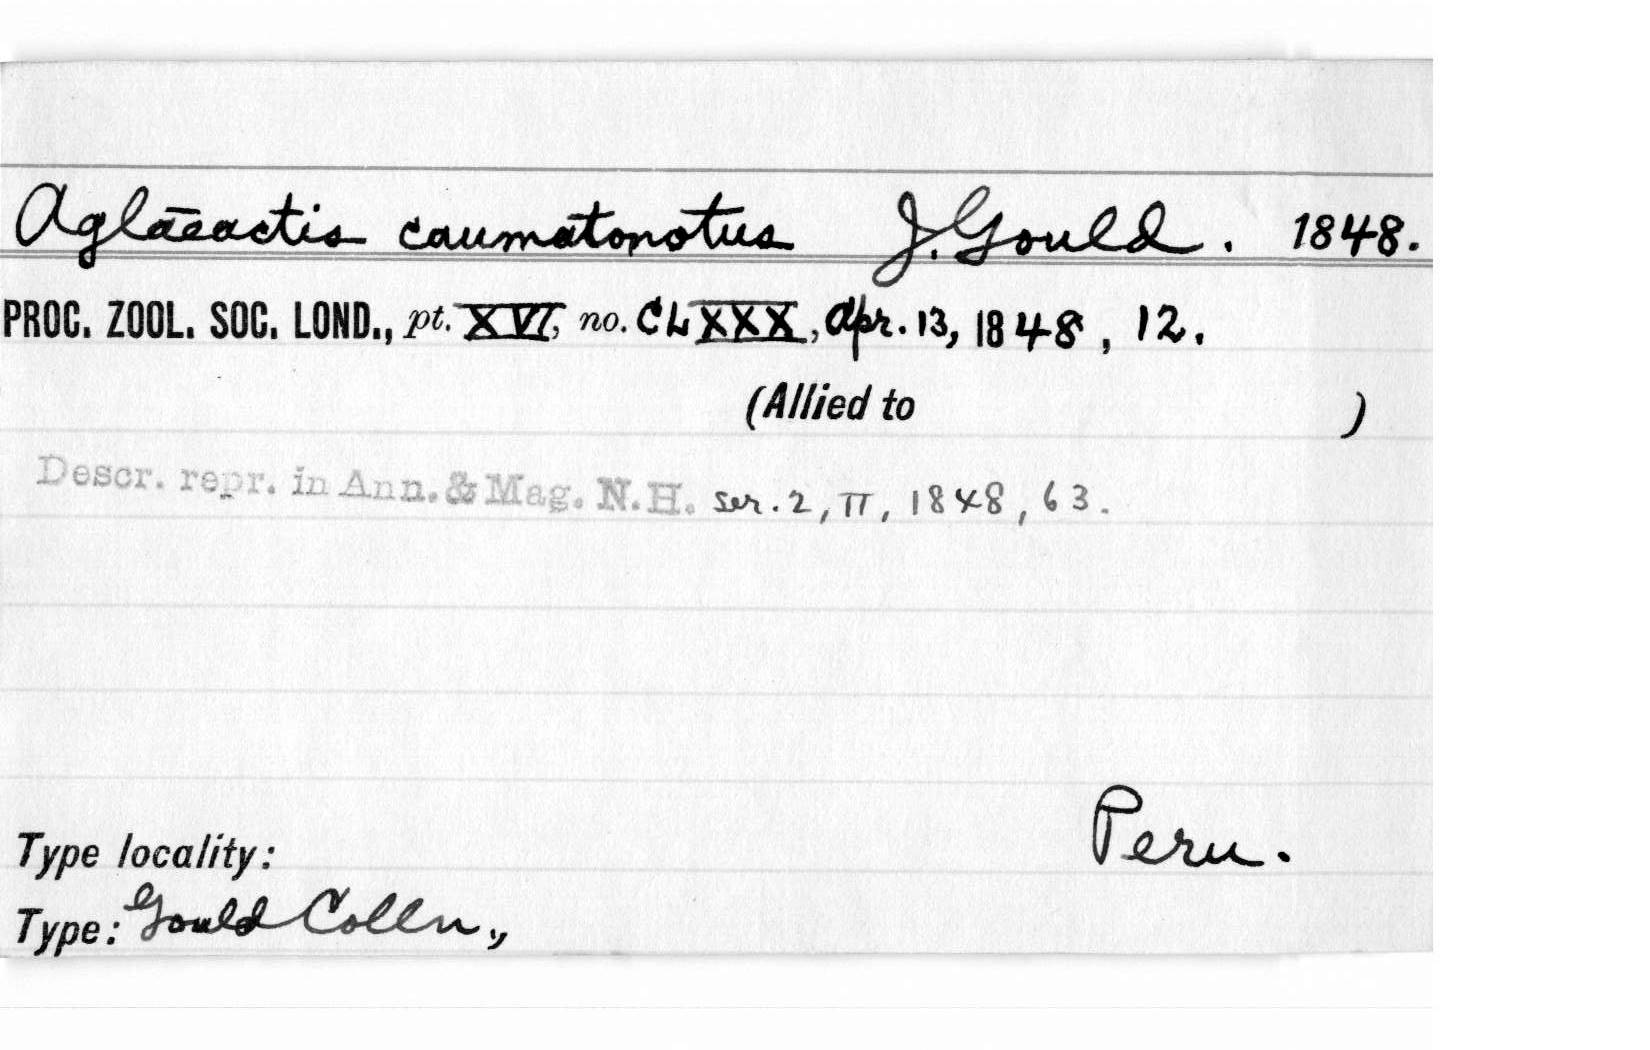 Aglaeactis caumatonotus J. Gould. 1848.
PROC. ZOOL. SOC. LOND., pt. XVI, no. CLXXX, Apr. 13, 1848, 12.
(Allied to )
Descr. repr. in Ann. & Mag. N.H. ser. 2, II, 1848, 63.
Peru.
Type locality:
Type: Gould Colln.,